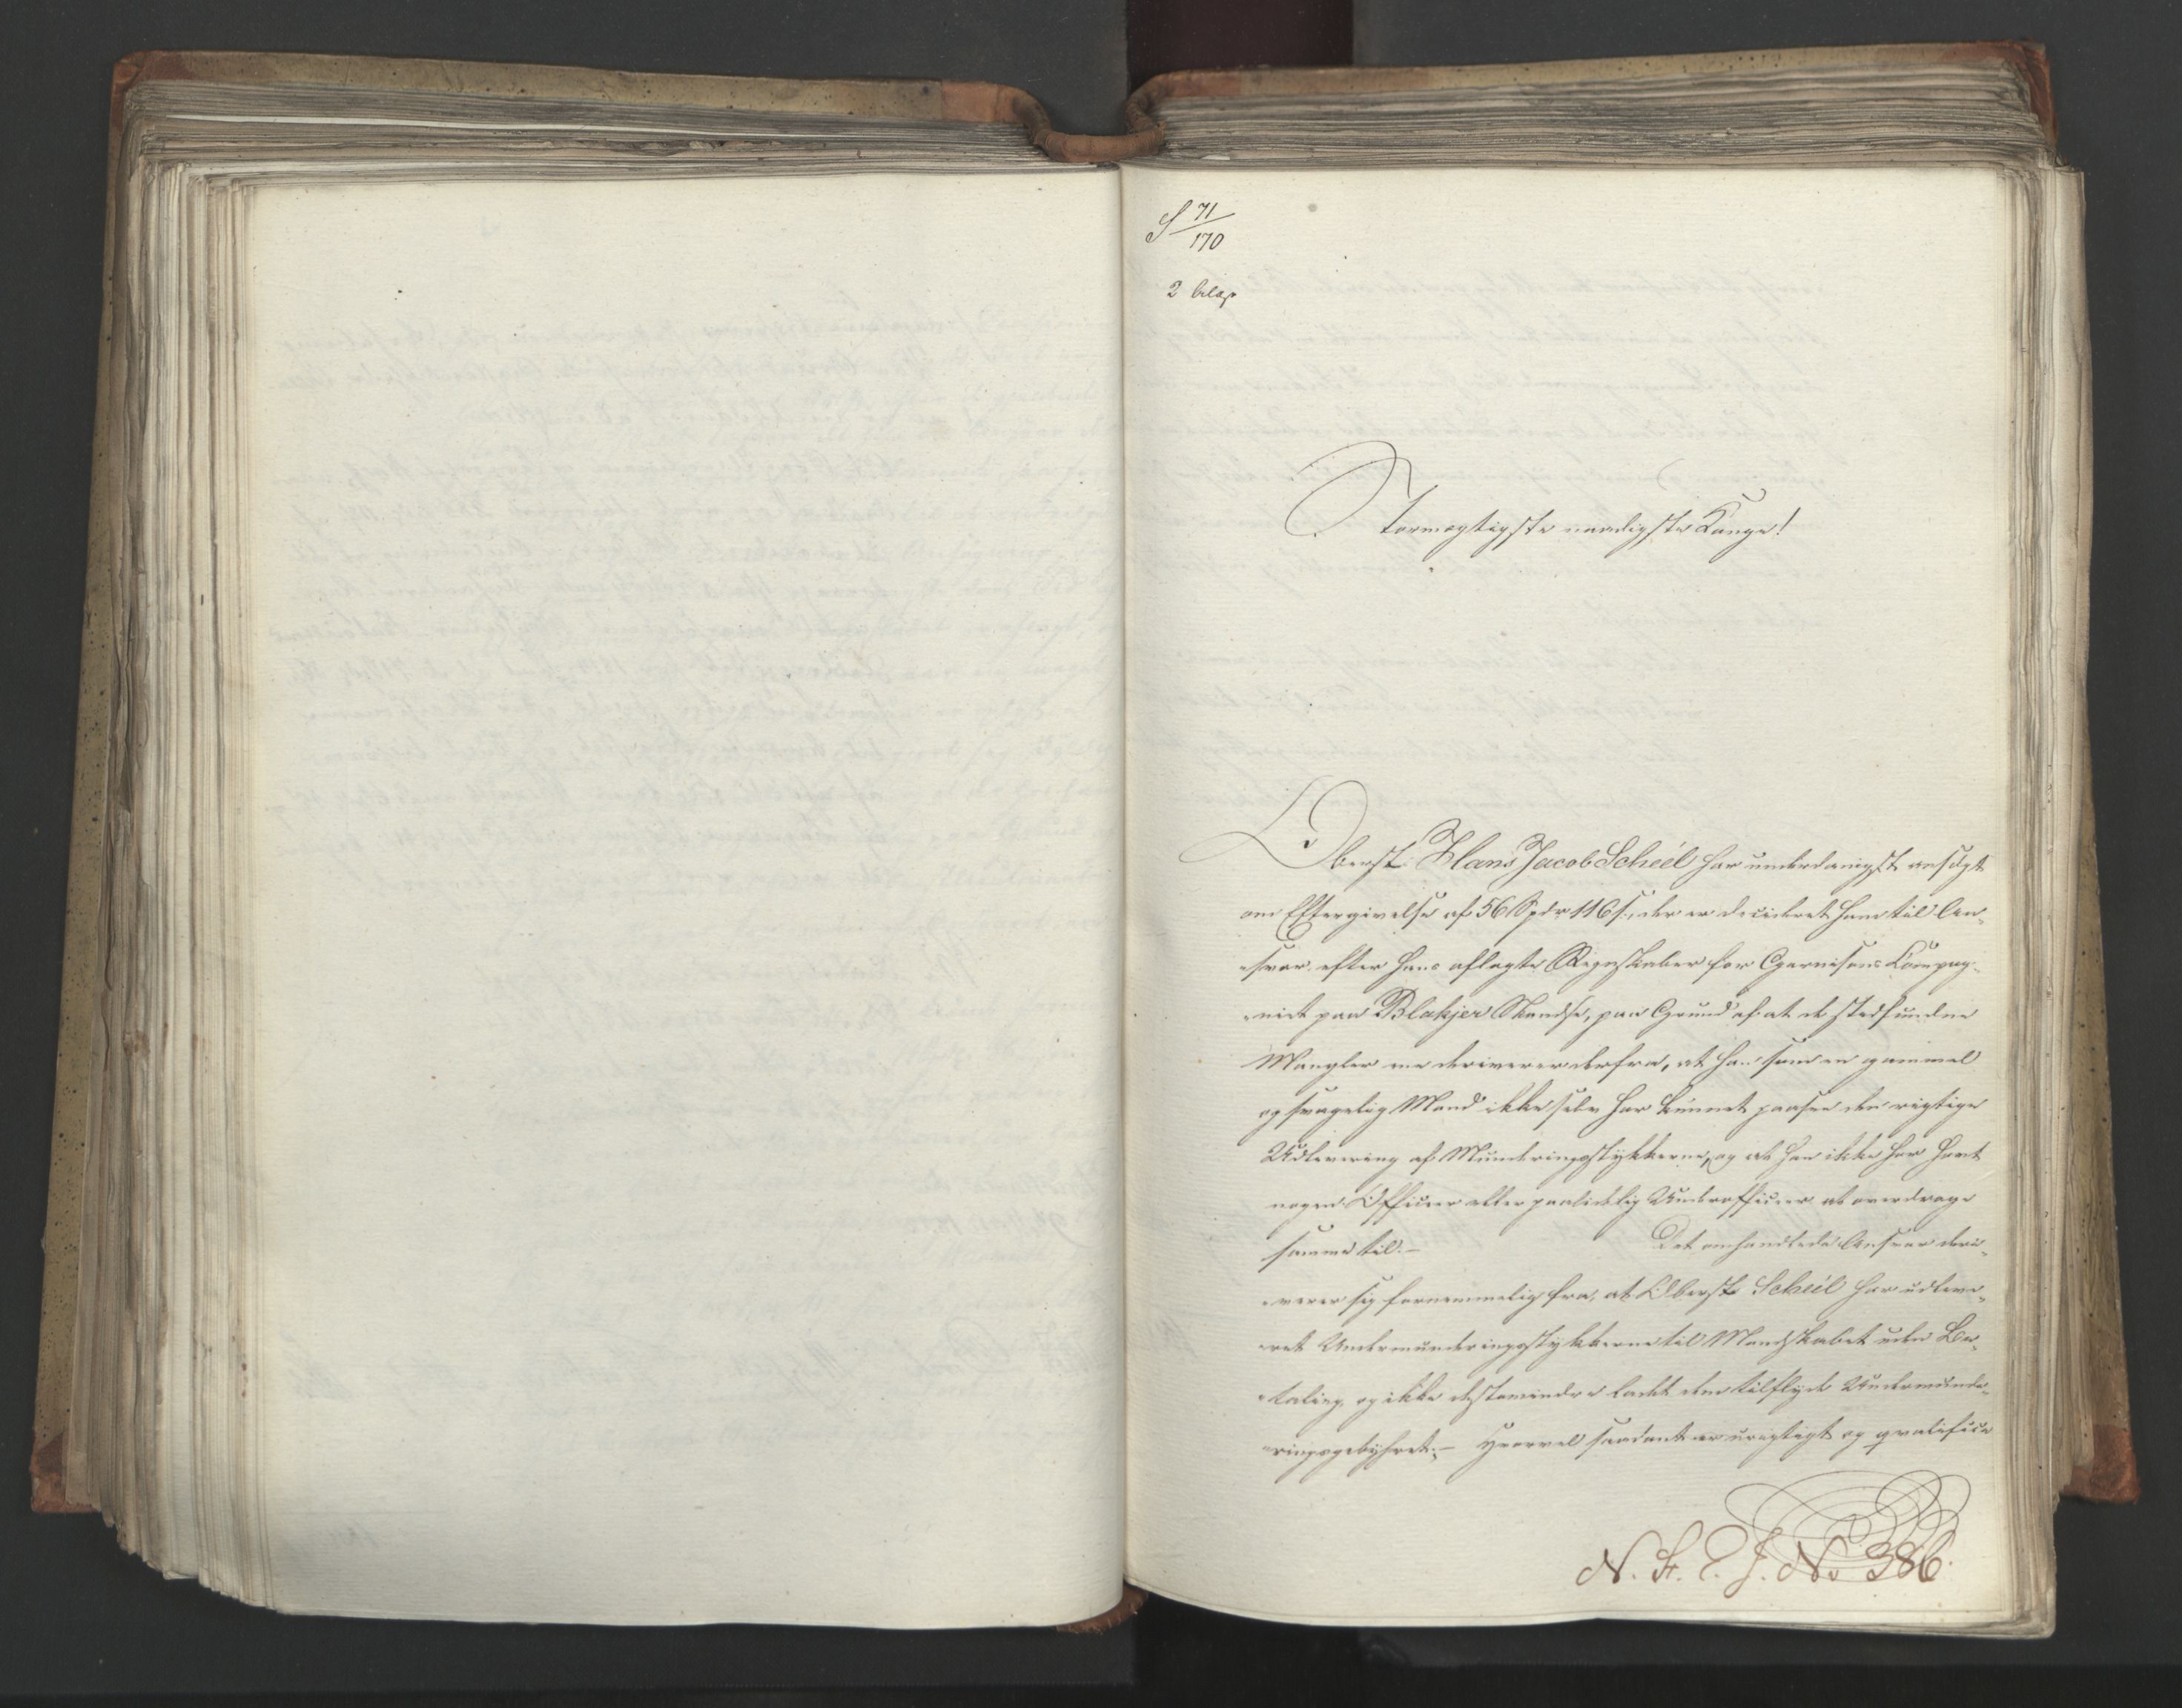 S 71/170
2 bilag
Stormægtigste naadigste Konge!
Oberst Hans Jacob Scheel har underdanigst ansøgt
om Eftergivelse af 56 Spdr 116 s., der er decideret ham til An-
-svar efter hans aflagte Regnskaber for Garnisons Compag-
-niet paa Blakjer Skandse, paa Grund af at de stedfundne
Mangler me deriverer derfra, at han som en gammel
og svagelig Mand ikke selv har kunnet paasee den rigtige
Udlevering af Munderingsstykkerne, og at han ikke har havt
nogen Officeer eller paalidelig Underofficeer at overdrage
samme til. — Det omhandlede Ansvar deri-
-verer sig fornemmelig fra, at Oberst Scheel har udleve-
-ret Undermunderingsstykkerne til Mandskabet uden Be-
-taling, og ikke destomindre ladet dem tilflyde Undermunde-
-ringsgebyhret; — Hvorvel saadant er urigtigt og qvalifice
N. F. C. J. No 386.